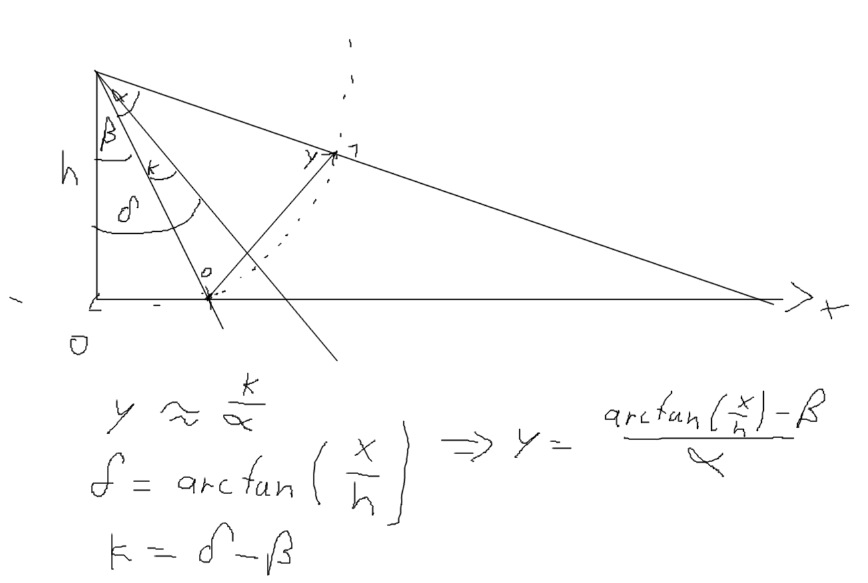 α
β
h
k
δ
y
1
0
x
0
y ≈ k/α
δ = arctan(x/h) ⇒ y = (arctan(x/h) - β)/α
k = δ - β